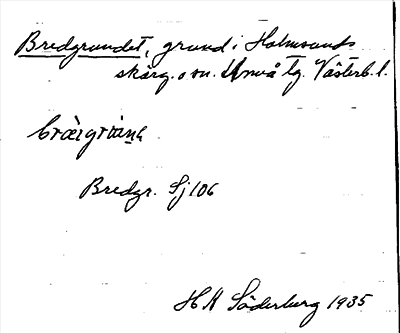 Bredgrundet, grund i Holmsunds
skärg. o sn. Umeå tg. Västerb. l.
Bredgr. Sj 106
H A Söderberg 1935